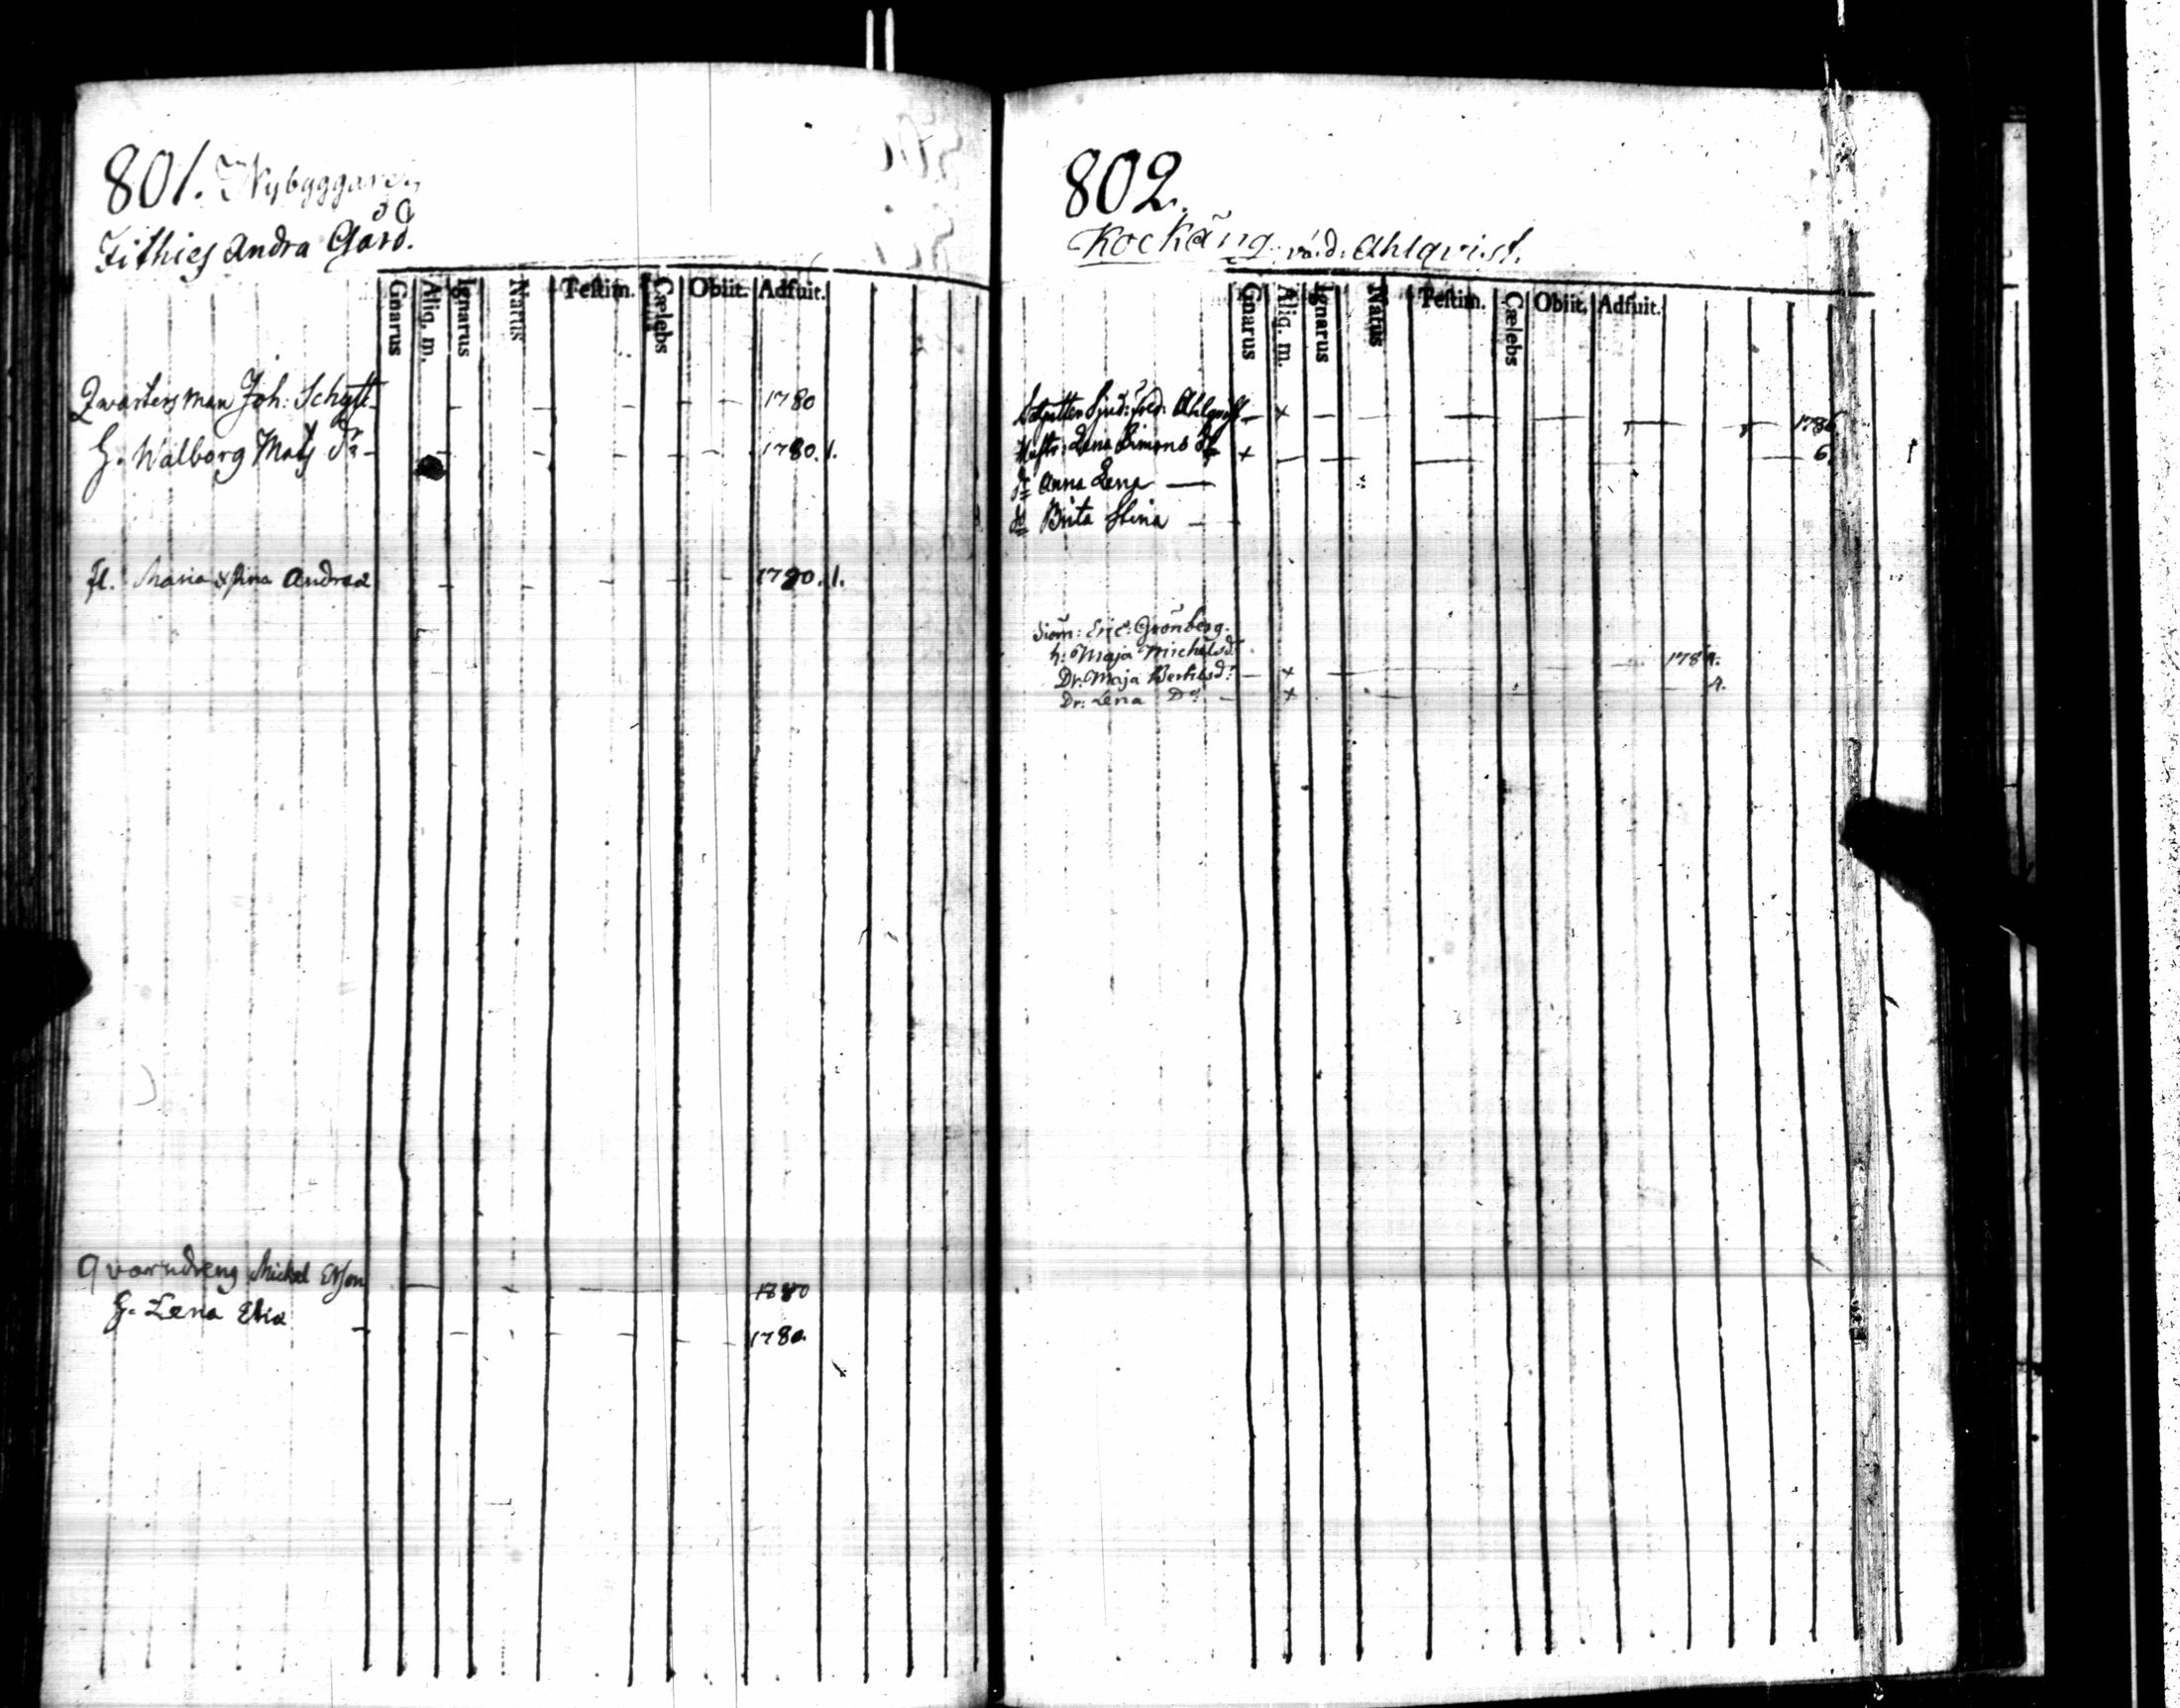 801. Nybyggare
Tithies Andra Gård.
Gnarus Aliq. m. Ignarus Natus Testim. Cælebs Obiit. Adfuit.
Qwartersman Joh: Schytt 1780
H. Walborg Mats dr 1780. 1.
fl. Maria Andreæ 1780. 1.
Qvarndreng Mickel Ersson 1780
H. Lena Eria 1780.
802.
Kockäng. vid: Ahlqvist.
Gnarus Aliq. m. Ignarus Natus Testim. Cælebs Obiit. Adfuit.
Fred: Ahlqvist x 1786
Hustr: Lena Simons dr x 6.
dr Anna Lena
dr Brita Stina
Siöm: Eric Grönberg.
h: Maja Michelsdr
Dr: Maja Bertilsdr x 178
Dr: Lena Do x